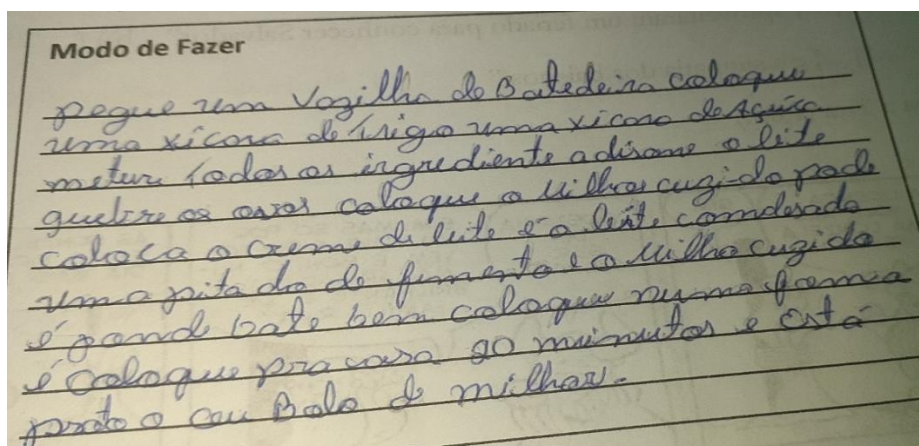 Modo de Fazer
pegue um vazilha de Batedeira caloque
uma xícara de trigo uma xicara de Açúca
mature todos os ingrediente adisone o leite
quebre os ovos caloque o Milhos cuzido pode
coloca o creme de leite é o leite comdesado
uma pitada de fumento e o Milho cuzido
é pand bate bem caloque numa forma
é caloque pra casa 20 mimutos e está
pronto o ceu Bolo de milhos.